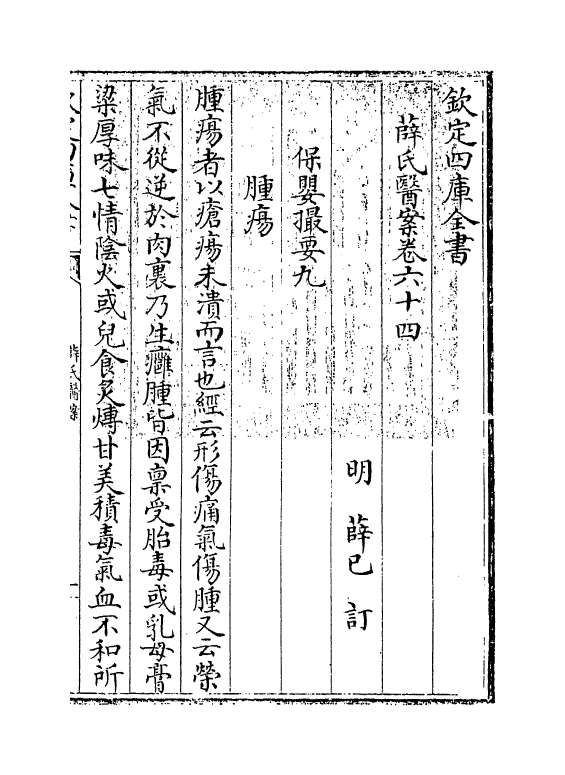 欽定四庫全書
薛氏醫案卷六十四
明　薛已　訂
保嬰撮要九
腫瘍
腫瘍者以瘡瘍未潰而言也經云形傷痛氣傷腫又云榮
氣不從逆於肉裏乃生癰腫皆因禀受胎毒或乳母膏
粱厚味七情陰火或兒食炙煿甘美積毒氣血不和所
薛氏醫案
一